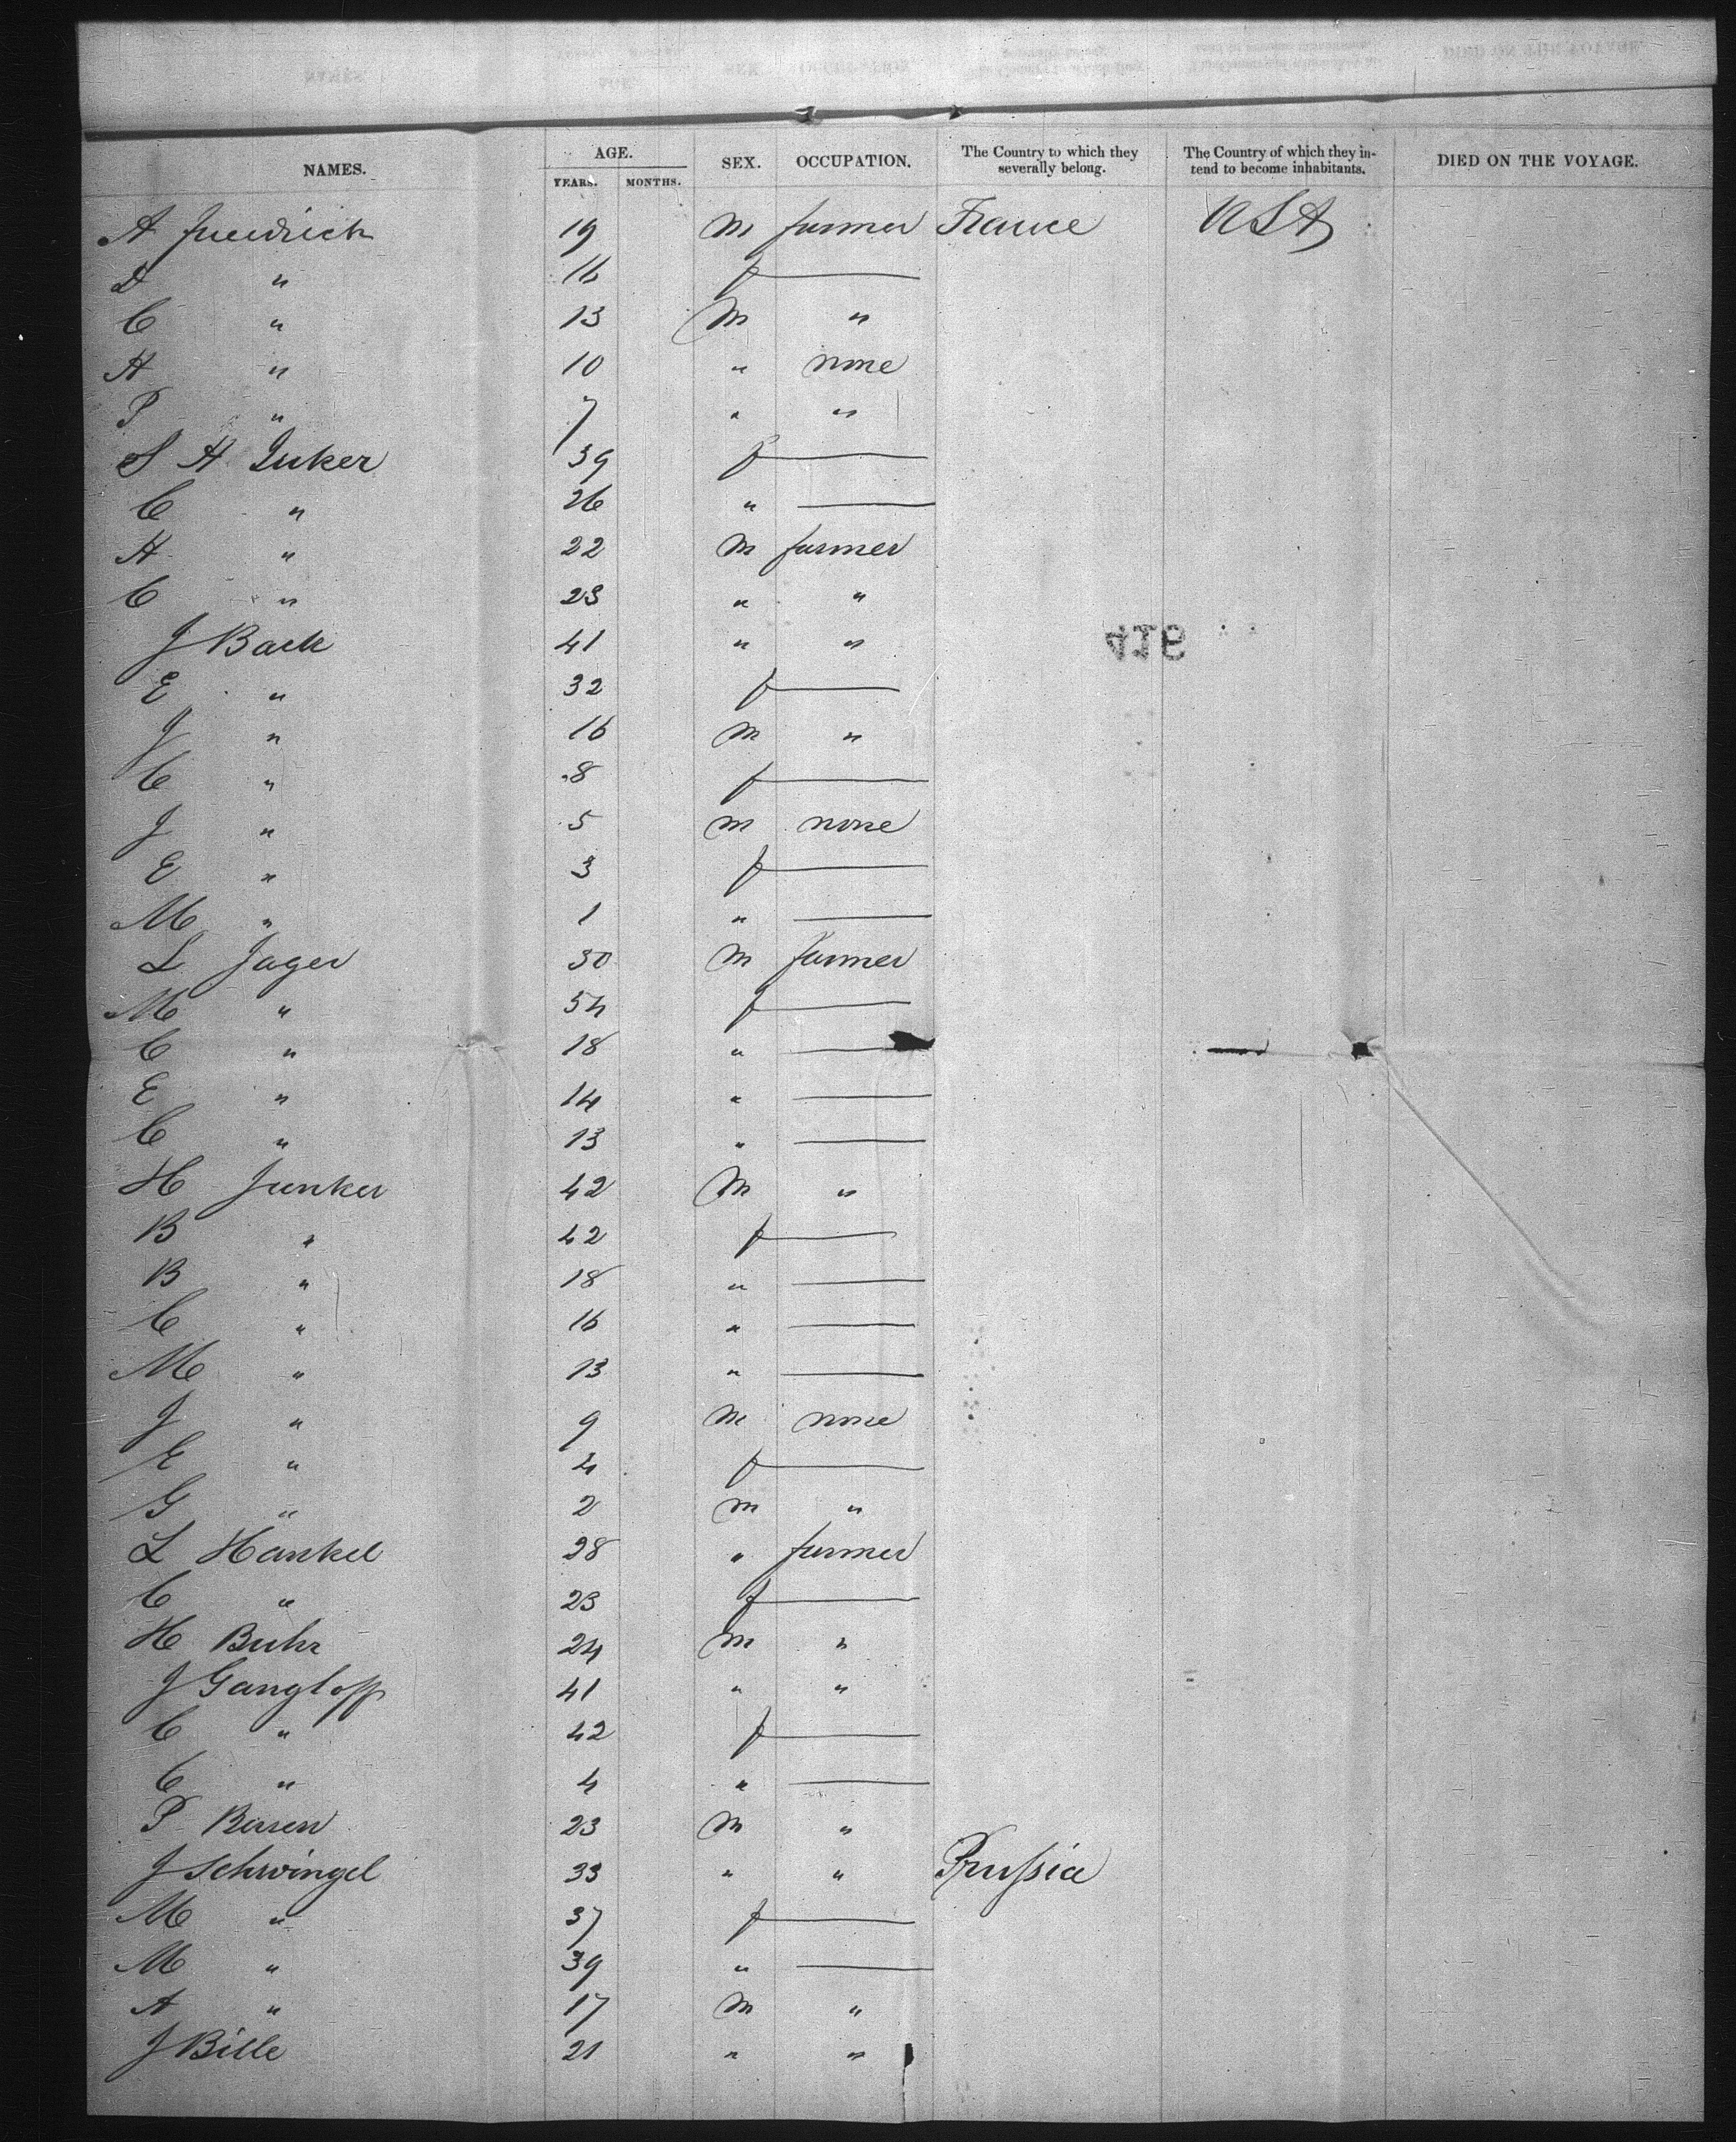 NAMES. AGE. SEX. OCCUPATION. The Country to which they severally belong. The Country of which they intend to become inhabitants. DIED ON THE VOYAGE.
YEARS. MONTHS.
A 19 m farmer France USA
D " 16 f —
C " 13 m "
H " 10 " none
P " 7 " "
S H 39 f —
C " 26 " —
H " 22 m farmer
C " 23 " "
J Back 41 " "
E " 32 f —
J " 16 m "
C " 8 f —
J " 5 m none
E " 3 f —
M " 1 " —
L Jager 30 m farmer
M " 54 f —
C " 18 " —
E " 14 " —
C " 13 " —
H Junker 42 m "
B " 42 f —
B " 18 " —
C " 16 " —
M " 13 " —
J " 9 m none
E " 4 f —
G " 2 m "
L Hankel 28 " farmer
C " 23 f —
H Buhr 24 m "
J Gangloff 41 " "
C " 42 f —
C " 4 " —
P 23 m "
J Schwingel 33 " " Prussia
M " 37 f —
M " 39 " —
A " 17 m "
J Bille 21 " "
416